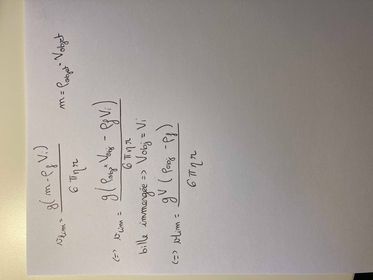 v_lim = g(m - ρ_f V_i) / 6πηr    m = ρ_objet × V_objet
(=) v_lim = g(ρ_obj × V_obj - ρ_f V_i) / 6πηr
bille immergée => V_obj = V_i
(=) v_lim = gV(ρ_obj - ρ_f) / 6πηr